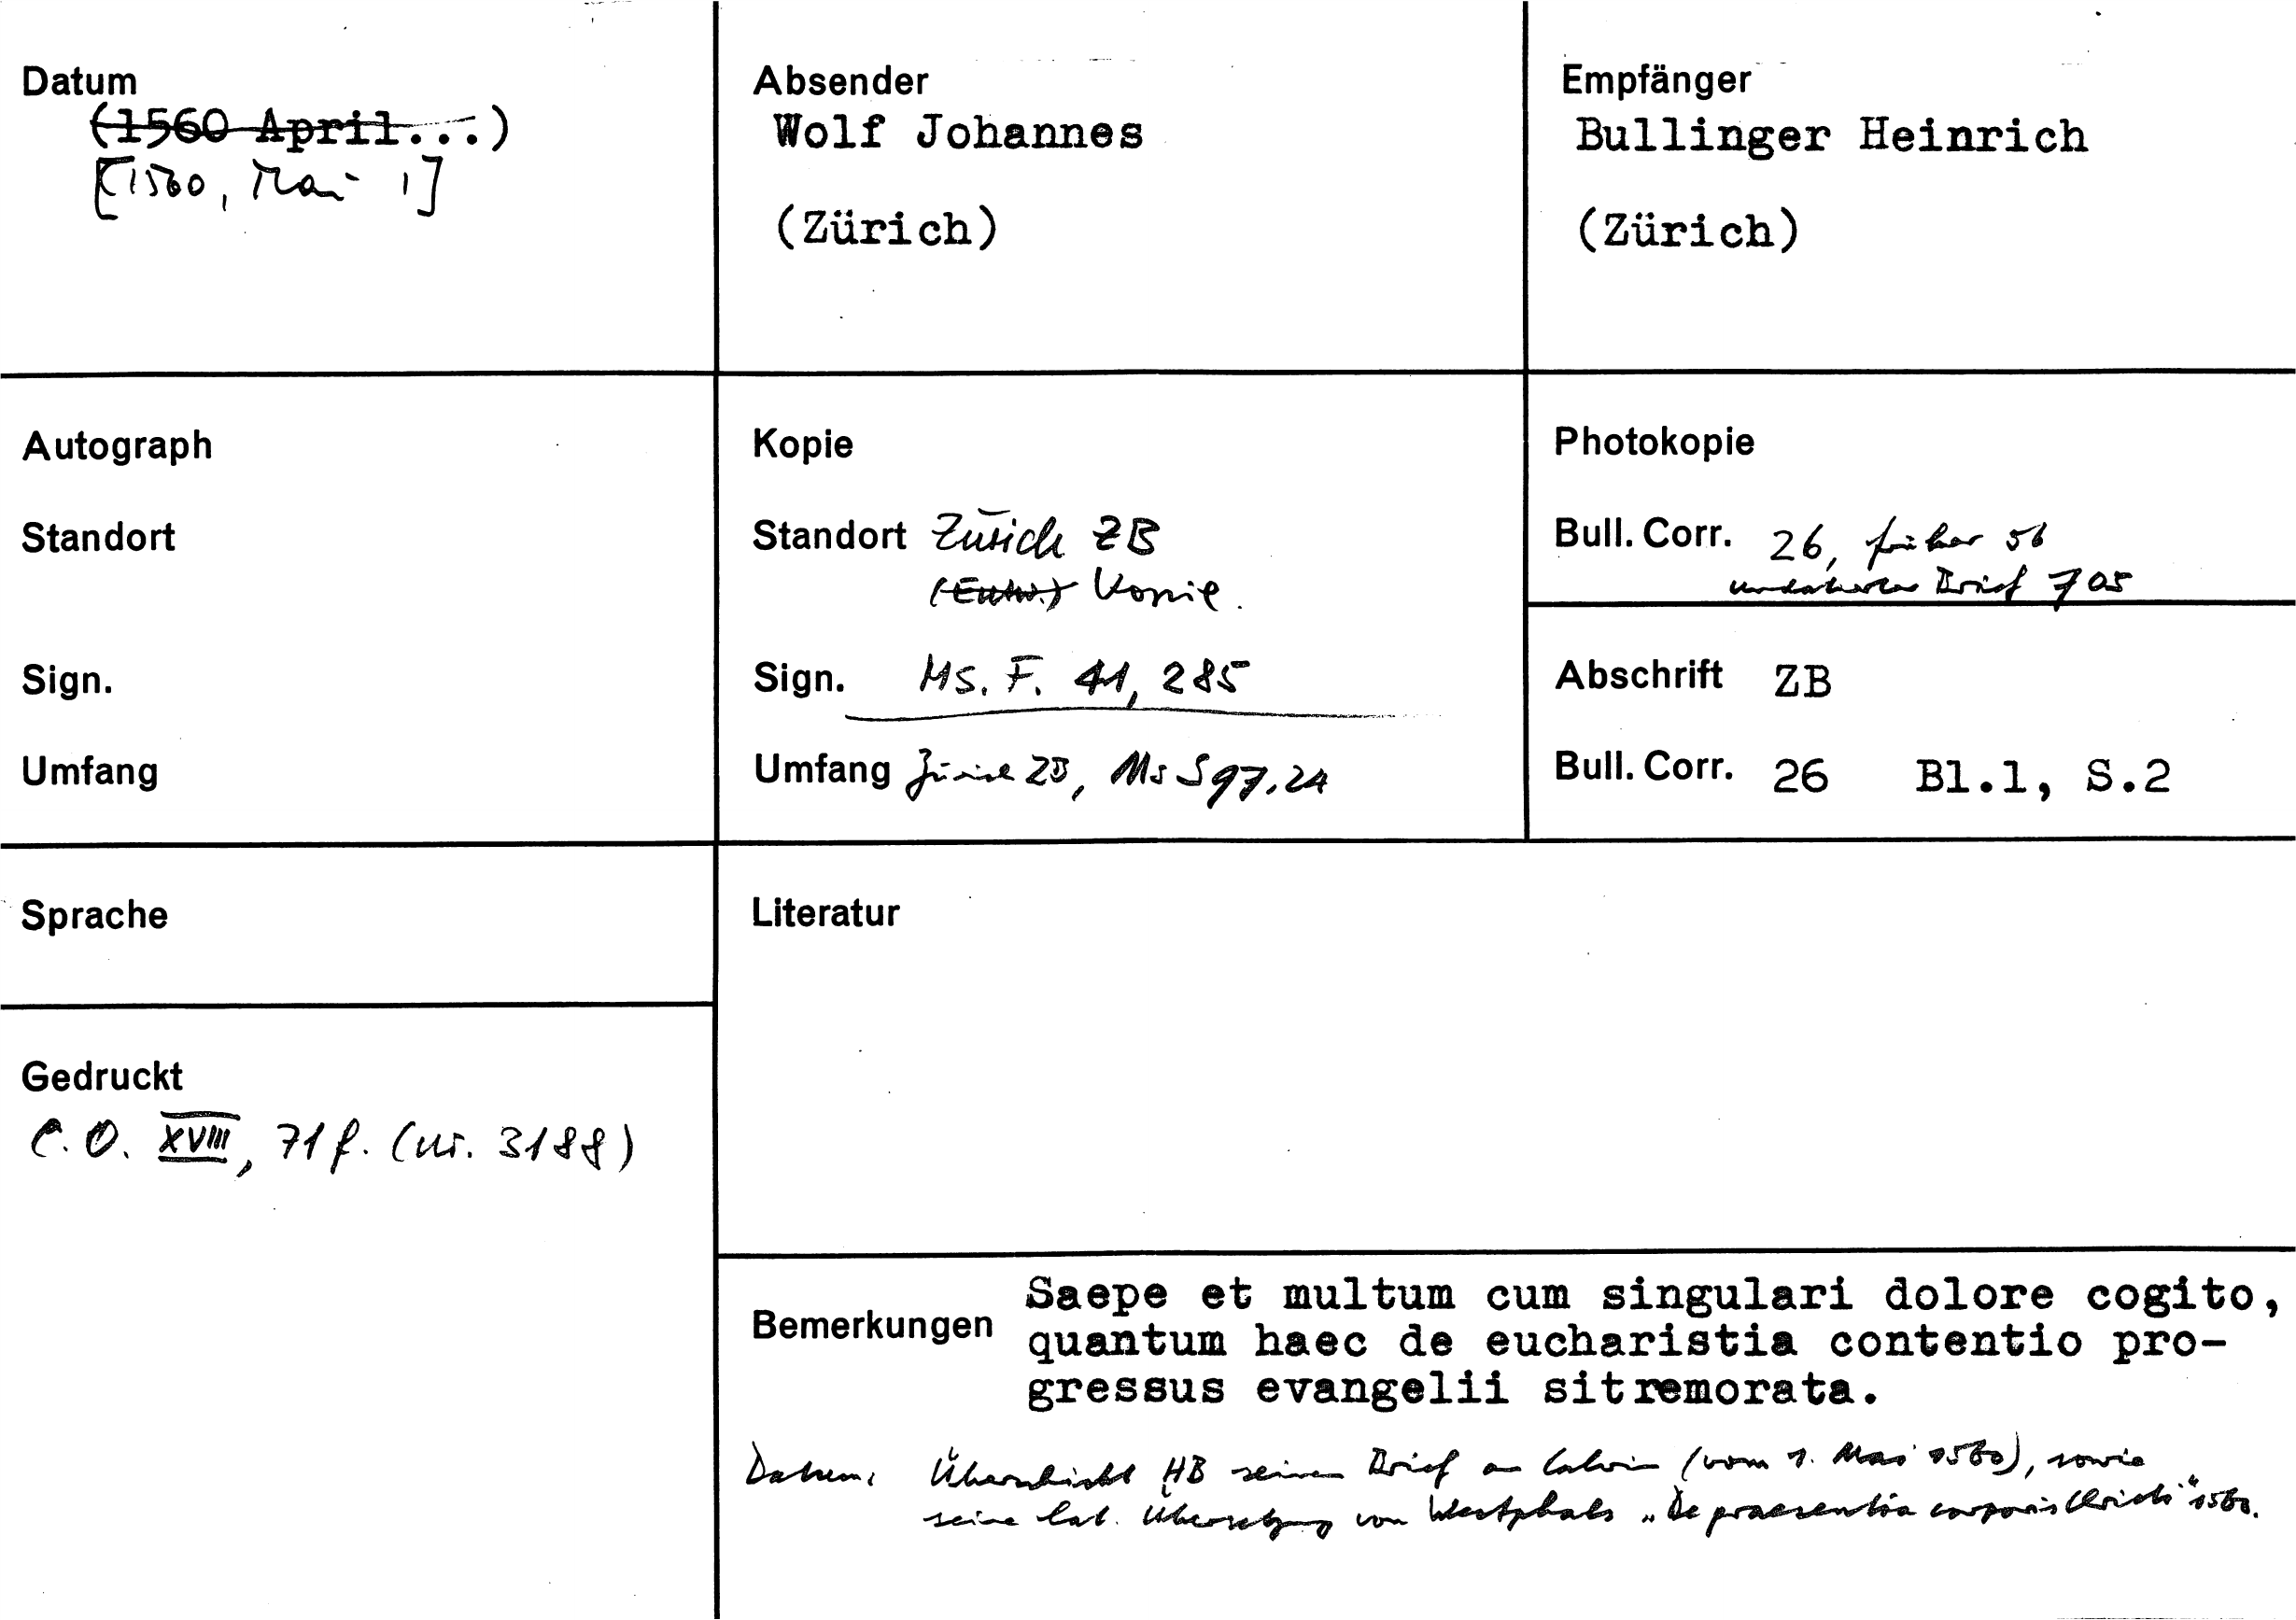 Datum
(1560 April...)
[1560, Mai 1]
Absender
Wolf Johannes
(Zürich)
Empfänger
Bullinger Heinrich
(Zürich)
Autograph
Standort
Sign.
Umfang
Kopie
Standort Zürich ZB
(Entw.) Kopie.
Sign. Ms. F. 41, 285
Umfang Zürich ZB, Ms S 97, 24
Photokopie
Bull. Corr. 26, früher 56
undatierter Brief 705
Abschrift ZB
Bull. Corr. 26 Bl.1, S.2
Sprache
Gedruckt
C.O. XVIII, 71f. (Nr. 3188)
Literatur
Bemerkungen
Saepe et multum cum singulari dolore cogito,
quantum haec de eucharistia contentio pro-
gressus evangelii sitremorata.
Datum: Überschickt HB seinen Brief an Calvin (vom 1. Mai 1560), sowie
seine lat. Übersetzung von Westphals "De praesentia corporis Christi" 1560.